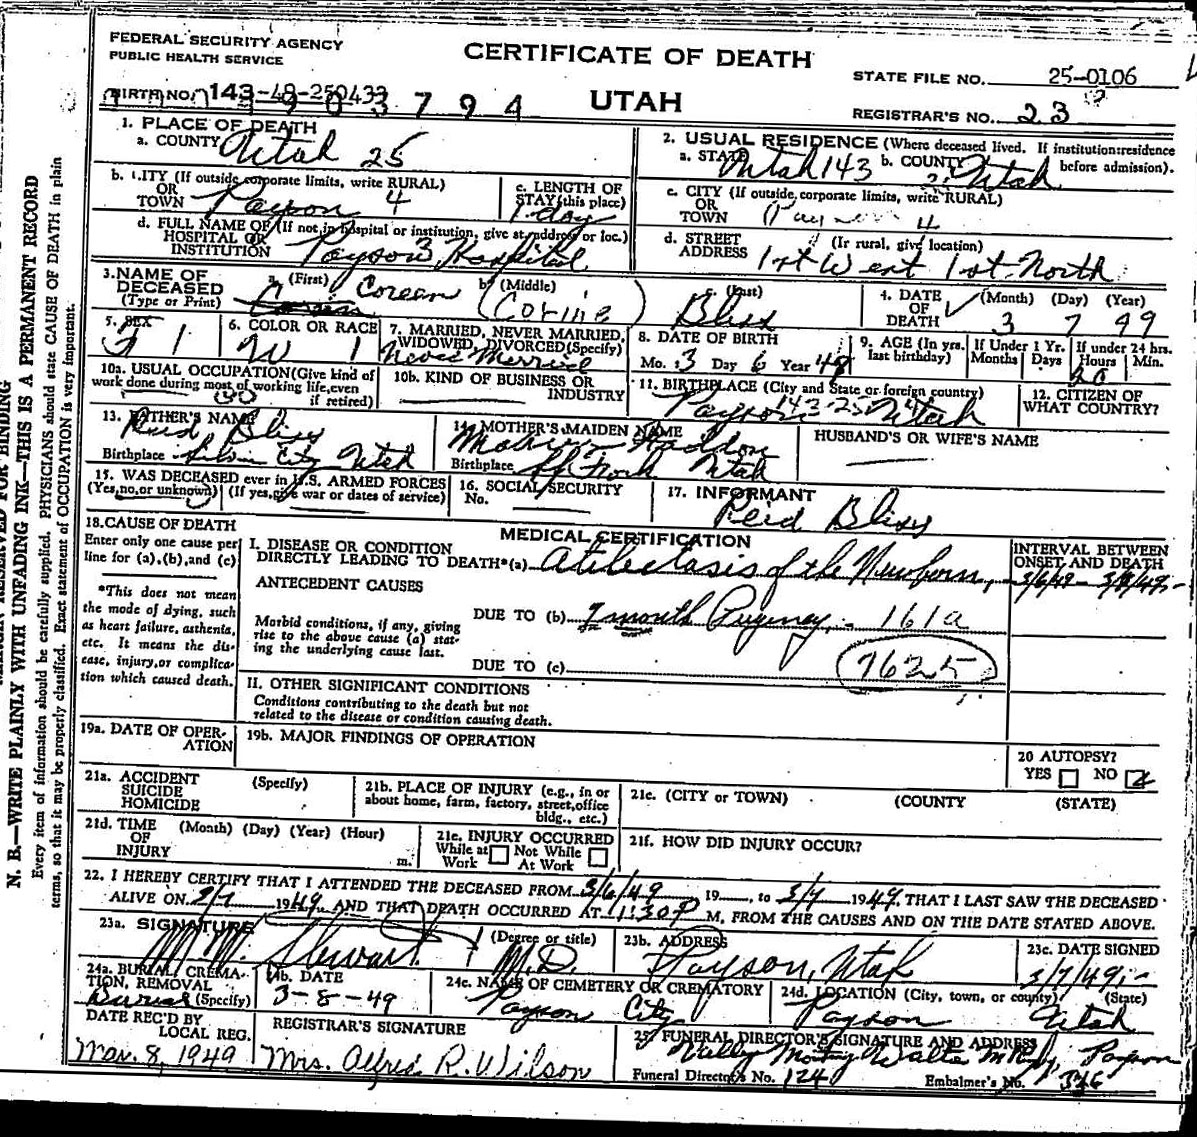 FEDERAL SECURITY AGENCY
PUBLIC HEALTH SERVICE
CERTIFICATE OF DEATH
STATE FILE NO. 25-0106
BIRTH NO. 143-49-250433
903794
UTAH
REGISTRAR'S NO. 23
1. PLACE OF DEATH
a. COUNTY Utah 25
2. USUAL RESIDENCE (Where deceased lived. If institution: residence before admission).
a. STATE Utah 143 b. COUNTY Utah
b. CITY (If outside corporate limits, write RURAL) OR TOWN Payson 4
c. LENGTH OF STAY (this place) 1 day
c. CITY (If outside corporate limits, write RURAL) OR TOWN Payson 4
d. FULL NAME OF (If not in hospital or institution, give st. address or loc.) HOSPITAL OR INSTITUTION Payson 3 Hospital
d. STREET ADDRESS (If rural, give location) 1st West 1st North
3. NAME OF DECEASED (Type or Print) a. (First) Coreen b. (Middle) (Corine) c. (Last) Bliss
4. DATE OF DEATH (Month) (Day) (Year) 3 7 49
5. SEX F 1
6. COLOR OR RACE W 1
7. MARRIED, NEVER MARRIED, WIDOWED, DIVORCED (Specify) Never Married
8. DATE OF BIRTH Mo. 3 Day 6 Year 49
9. AGE (In yrs. last birthday) If Under 1 Yr. Months Days If under 24 hrs. Hours Min.
20
10a. USUAL OCCUPATION (Give kind of work done during most of working life, even if retired)
10b. KIND OF BUSINESS OR INDUSTRY
11. BIRTHPLACE (City and State or foreign country) Payson 143-25-4 Utah
12. CITIZEN OF WHAT COUNTRY?
13. FATHER'S NAME Reid Bliss
Birthplace Silver City Utah
14. MOTHER'S MAIDEN NAME Haddon
Birthplace Utah
HUSBAND'S OR WIFE'S NAME
15. WAS DECEASED ever in U.S. ARMED FORCES (Yes, no, or unknown) (If yes, give war or dates of service)
16. SOCIAL SECURITY No.
17. INFORMANT Reid Bliss
18. CAUSE OF DEATH
Enter only one cause per line for (a), (b), and (c)
*This does not mean the mode of dying, such as heart failure, asthenia, etc. It means the disease, injury, or complication which caused death.
MEDICAL CERTIFICATION
I. DISEASE OR CONDITION DIRECTLY LEADING TO DEATH* (a) Atelectasis of the Newborn,
INTERVAL BETWEEN ONSET AND DEATH
3/6/49 - 3/7/49
ANTECEDENT CAUSES
Morbid conditions, if any, giving rise to the above cause (a) stating the underlying cause last.
DUE TO (b) 7 month Pregnancy 161a
DUE TO (c) 7625
II. OTHER SIGNIFICANT CONDITIONS
Conditions contributing to the death but not related to the disease or condition causing death.
19a. DATE OF OPERATION
19b. MAJOR FINDINGS OF OPERATION
20 AUTOPSY?
YES NO
21a. ACCIDENT SUICIDE HOMICIDE (Specify)
21b. PLACE OF INJURY (e.g., in or about home, farm, factory, street, office bldg., etc.)
21c. (CITY or TOWN) (COUNTY (STATE)
21d. TIME OF INJURY (Month) (Day) (Year) (Hour) m.
21e. INJURY OCCURRED While at Work Not While At Work
21f. HOW DID INJURY OCCUR?
22. I HEREBY CERTIFY THAT I ATTENDED THE DECEASED FROM 3/6/49 19__, to 3/7 1949, THAT I LAST SAW THE DECEASED
ALIVE ON 3/7 1949, AND THAT DEATH OCCURRED AT 11:30 P M, FROM THE CAUSES AND ON THE DATE STATED ABOVE.
23a. SIGNATURE Stewart (Degree or title) M.D.
23b. ADDRESS Payson, Utah
23c. DATE SIGNED 3/7/49
24a. BURIAL, CREMATION, REMOVAL (Specify) Burial
24b. DATE 3-8-49
24c. NAME OF CEMETERY OR CREMATORY Payson City
24d. LOCATION (City, town, or county) (State) Payson Utah
DATE REC'D BY LOCAL REG. Mar. 8, 1949
REGISTRAR'S SIGNATURE Mrs. Alfred R. Wilson
25 FUNERAL DIRECTOR'S SIGNATURE AND ADDRESS Payson
Funeral Director's No. 124 Embalmer's No. 346
N. B.—WRITE PLAINLY WITH UNFADING INK—THIS IS A PERMANENT RECORD
Every item of information should be carefully supplied. PHYSICIANS should state CAUSE OF DEATH in plain
terms, so that it may be properly classified. Exact statement of OCCUPATION is very important.